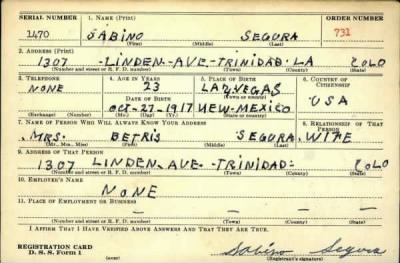 SERIAL NUMBER 1. NAME (Print) ORDER NUMBER
1470 SABINO SEGURA 731
(First) (Middle) (Last)
2. ADDRESS (Print)
1307 - LINDEN - AVE - TRINIDAD - LA COLO
(Number and street or R. F. D. number) (Town) (County) (State)
3. TELEPHONE 4. AGE IN YEARS 5. PLACE OF BIRTH 6. COUNTRY OF CITIZENSHIP
NONE 23 LAS VEGAS
DATE OF BIRTH (Town or county)
OCT-27-1917 NEW-MEXICO USA
(Exchange) (Number) (Mo.) (Day) (Yr.) (State or country)
7. NAME OF PERSON WHO WILL ALWAYS KNOW YOUR ADDRESS 8. RELATIONSHIP OF THAT PERSON
MRS. BETRIS SEGURA. WIFE
(Mr., Mrs., Miss) (First) (Middle) (Last)
9. ADDRESS OF THAT PERSON
1307 LINDEN - AVE. - TRINIDAD - COLO
(Number and street or R. F. D. number) (Town) (County) (State)
10. EMPLOYER'S NAME
NONE
11. PLACE OF EMPLOYMENT OR BUSINESS
— — — —
(Number and street or R. F. D. number) (Town) (County) (State)
I AFFIRM THAT I HAVE VERIFIED ABOVE ANSWERS AND THAT THEY ARE TRUE.
REGISTRATION CARD
D. S. S. Form 1 Sabino Segura
(Registrant's signature)